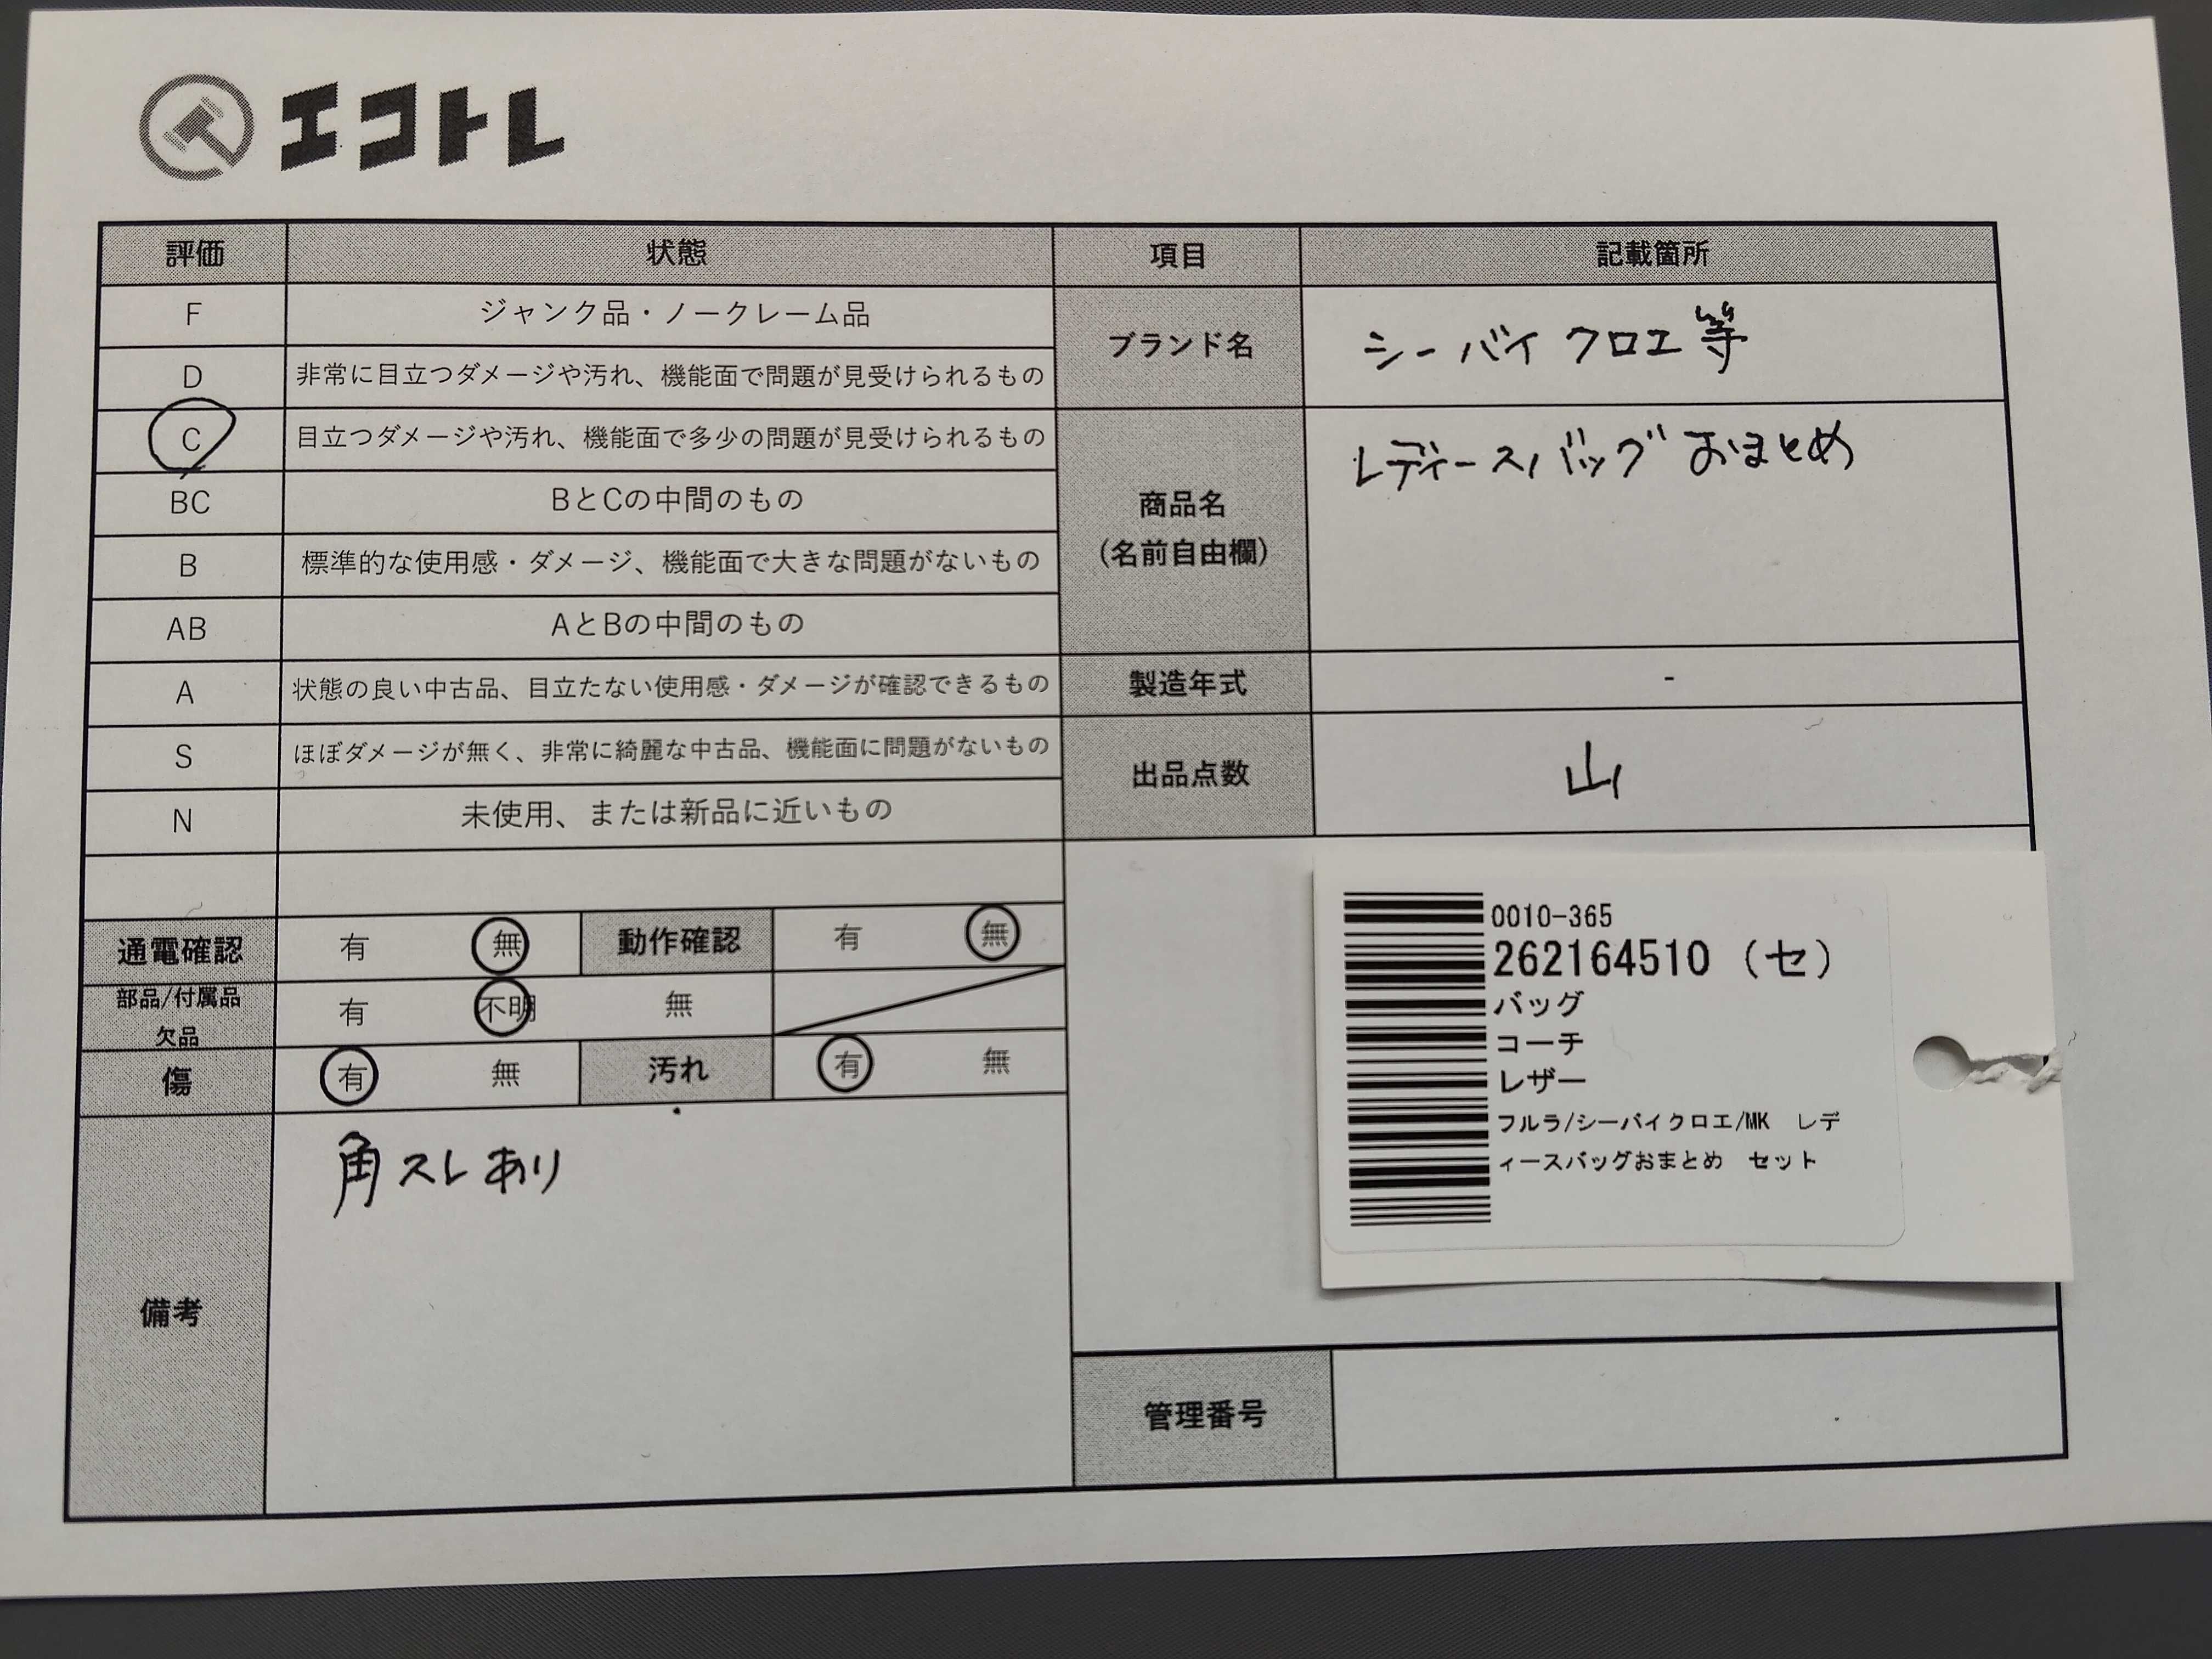 エコトレ
評価 状態 項目 記載箇所
F ジャンク品・ノークレーム品
D 非常に目立つダメージや汚れ、機能面で問題が見受けられるもの
C 目立つダメージや汚れ、機能面で多少の問題が見受けられるもの
BC BとCの中間のもの
B 標準的な使用感・ダメージ、機能面で大きな問題がないもの
AB AとBの中間のもの
A 状態の良い中古品、目立たない使用感・ダメージが確認できるもの
S ほぼダメージが無く、非常に綺麗な中古品、機能面に問題がないもの
N 未使用、または新品に近いもの
ブランド名 シーバイクロエ等
商品名
(名前自由欄)
レディースバッグ おまとめ
製造年式 -
出品点数 山
通電確認 有 無 動作確認 有 無
部品/付属品
欠品
有 不明 無
傷 有 無 汚れ 有 無
備考 角スレあり
0010-365
262164510 (セ)
バッグ
コーチ
レザー
フルラ/シーバイクロエ/MK レデ
ィースバッグおまとめ セット
管理番号